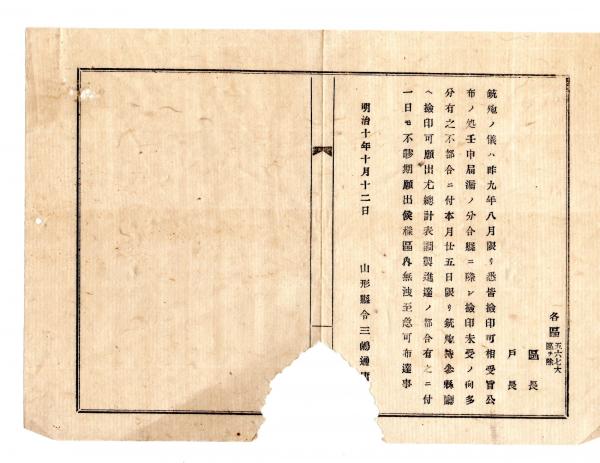 各區 五六七大區ヲ除
區長
戸長
銃炮ノ儀ハ昨九年八月限リ悉皆撿印可相受旨公
布ノ処壬申届漏ノ分合縣ニ際シ撿印未受ノ向多
分有之不都合ニ付本月廿五日限リ銃炮持参縣廳
ヘ撿印可願出尤總計表調製進達ノ都合有之ニ付
一日モ不謬期願出候様區内無洩至急可布達事
明治十年十月十二日
山形縣令三島通